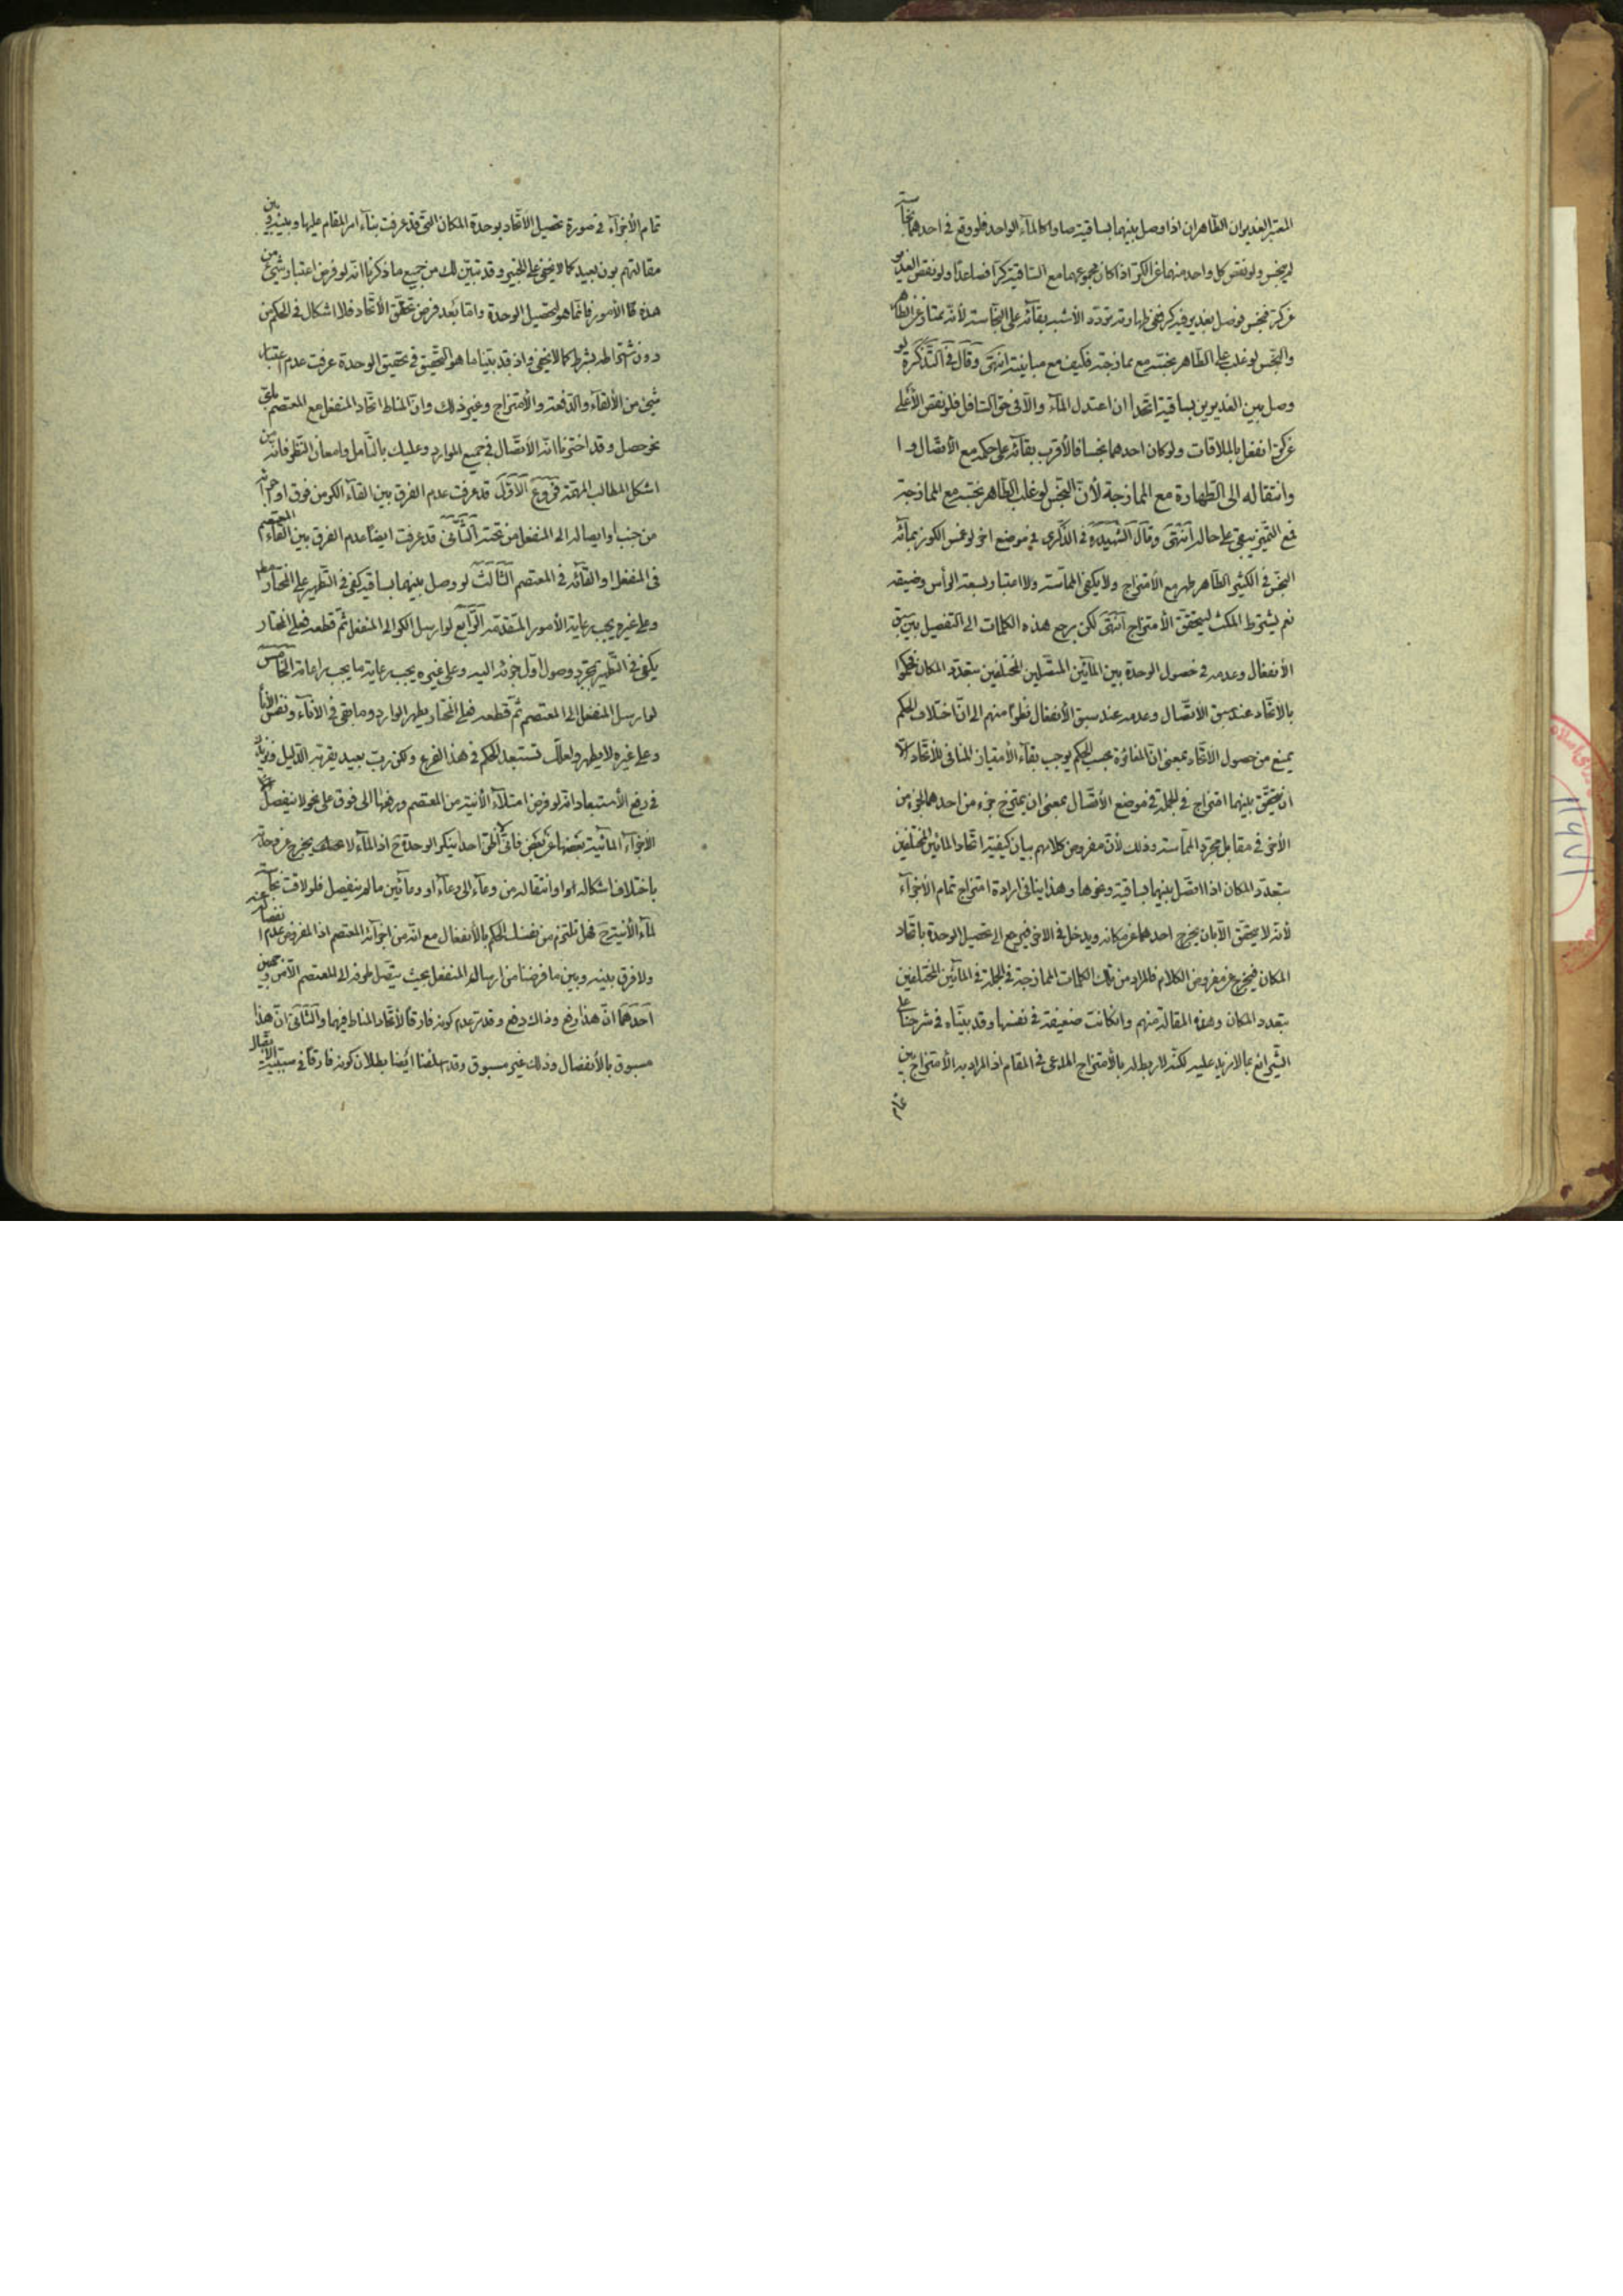 المعتبر الغديران الطاهران اذا وصل بينهما بساقية صارا كالماء الواحد فلو وقع في احدهما نجاسة
لم ينجس ولو نقص كل واحد منهما عن الكر اذا كان مجموعهما مع الساقية كرا فصاعدا ولو نقص الغدير
عن كر فنجس فوصل بغدير فيه كر ففي طهارته تردد الأشبه بقائه على النجاسة لأنه ممتاز عن الطاهر
والنجس لو غلب على الطاهر نجسه مع ممازجته فكيف مع مباينته انتهى وقال في التذكرة لو
وصل بين الغديرين بساقية اتحدا ان اعتدل الماء والا في حق السافل فلو نقص الأعلى
عن كر انفعل بالملاقات ولو كان احدهما نجسا فالأقرب بقائه على حكمه مع الأتصال و ا
وانتقاله الى الطهارة مع الممازجة لأن النجس لو غلب الطاهر نجسه مع الممازجة
فمع التميز يبقى على حاله انتهى وقال الشهيد ره في الذكرى في موضع اخر لو غمس الكوز بمائه
النجس في الكثير الطاهر طهر مع الأمتزاج ولا يكفي المماسة ولا اعتبار بسعة الرأس وضيقه
نعم يشترط المكث ليتحقق الأمتزاج انتهى لكن يرجع هذه الكلمات الى التفصيل بين سبق
الأنفعال وعدمه في حصول الوحدة بين المائين المتصلين المختلفين بتعدد المكان فحكموا
بالاتحاد عند سبق الاتصال وعدمه عند سبق الأنفعال نظرا منهم الى ان اختلاف الحكم
يمنع من حصول الاتحاد بمعنى ان المغائرة بحسب الحكم يوجب بقاء الأمتياز المنافي للأتحاد الا
ان يتحقق بينهما امتزاج في الجملة في موضع الأتصال بمعنى ان يمتزج جزء من احدهما لجزء من
الأخر في مقابل مجرد المماسة وذلك لأن مفروض كلامهم بيان كيفية اتحاد المائين المختلفين
بتعدد المكان اذا اتصل بينهما بساقية ونحوها وهذا ينافي ارادة امتزاج تمام الأجزاء
لأنه لا يتحقق الا بان يخرج احدهما عن مكانه ويدخل في الاخر فيرجع الى تحصيل الوحدة باتحاد
المكان فيخرج عن مفروض الكلام فالمراد من تلك الكلمات الممازجة في الجملة في المائين المختلفين
بتعدد المكان وهذه المقالة منهم وان كانت ضعيفة في نفسها وقد بيناه في شرحنا على
الشرائع بما لا مزيد عليه لكنه لا ربط له بالأمتزاج المدعى في المقام اذ المراد به الأمتزاج بين
تمام
تمام الأجزاء في صورة تحصيل الاتحاد بوحدة المكان التي قد عرفت بناء امر المقام عليها وبينه وبين
مقالتهم بون بعيد كما لا يخفى على الخبير وقد تبين لك من جميع ما ذكرنا انه لو فرض اعتبار شيء من
هذه الأمور فانما هو لتحصيل الوحدة واما بعد فرض تحقق الأتحاد فلا اشكال في الحكم من
دون اشتراطه بشرط كما لا يخفى واذ قد بينا ما هو التحقيق في تحقيق الوحدة عرفت عدم اعتبار
شيء من الألقاء والدفعة والأمتزاج وغير ذلك وان المناط اتحاد المنفعل مع المعتصم باي
نحو حصل وقد اخترنا انه الأتصال في جميع الموارد وعليك بالتأمل وامعان النظر فانه من
اشكل المطالب المهمة فروع الأول قد عرفت عدم الفرق بين القاء الكر من فوق او اجرائه
من جنب او ايصاله الى المنفعل من تحته الثاني قد عرفت ايضا عدم الفرق بين القاء المعتصم
في المنفعل او القائه في المعتصم الثالث لو وصل بينهما بساقية كفى في التطهير على المختار
وعلى غيره يجب رعاية الأمور المتقدمة الرابع لو ارسل الكر الى المنفعل ثم قطعه فعلى المختار
يكفي في التطهير مجرد وصول اول جزئه اليه وعلى غيره يجب رعاية ما يجب مراعاته الخامس
لو ارسل المنفعل الى المعتصم ثم قطعه فعلى المختار يطهر الوارد وما بقي في الاناء ونفس الأناء
وعلى غيره لا يطهر ولعلك تستبعد الحكم في هذا الفرع ولكن رب بعيد يقربه الدليل ونزيدك
في رفع الأستبعاد انه لو فرض امتلاء الأنية من المعتصم ورفعناه الى فوق على نحو لا ينفصل
الأجزاء المائية بعضها عن بعض فاني لا اظن احدا ينكر الوحدة ح اذ الماء لا يخرج عن وحدته
باختلاف اشكاله او انتقاله من وعاء الى وعاء او وعائين ما لم ينفصل فلو لاقت نجاسة
لماء الأنية ح فهل تلتزم من نفسك الحكم بالأنفعال مع انه من اجزائه المعتصم اذ المفروض عدم انفصاله عنه
ولا فرق بينه وبين ما فرضنا من ارسال المنفعل بحيث يتصل طرفه الى المعتصم الا من وجهين
احدهما ان هذا رفع وذاك دفع وقد مر عدم كونه فارقا لأتحاد المناط فيهما والثاني ان هذا
مسبوق بالأنفصال وذلك غير مسبوق وقد اسلفنا ايضا بطلان كونه فارقا في سببية الأتصال